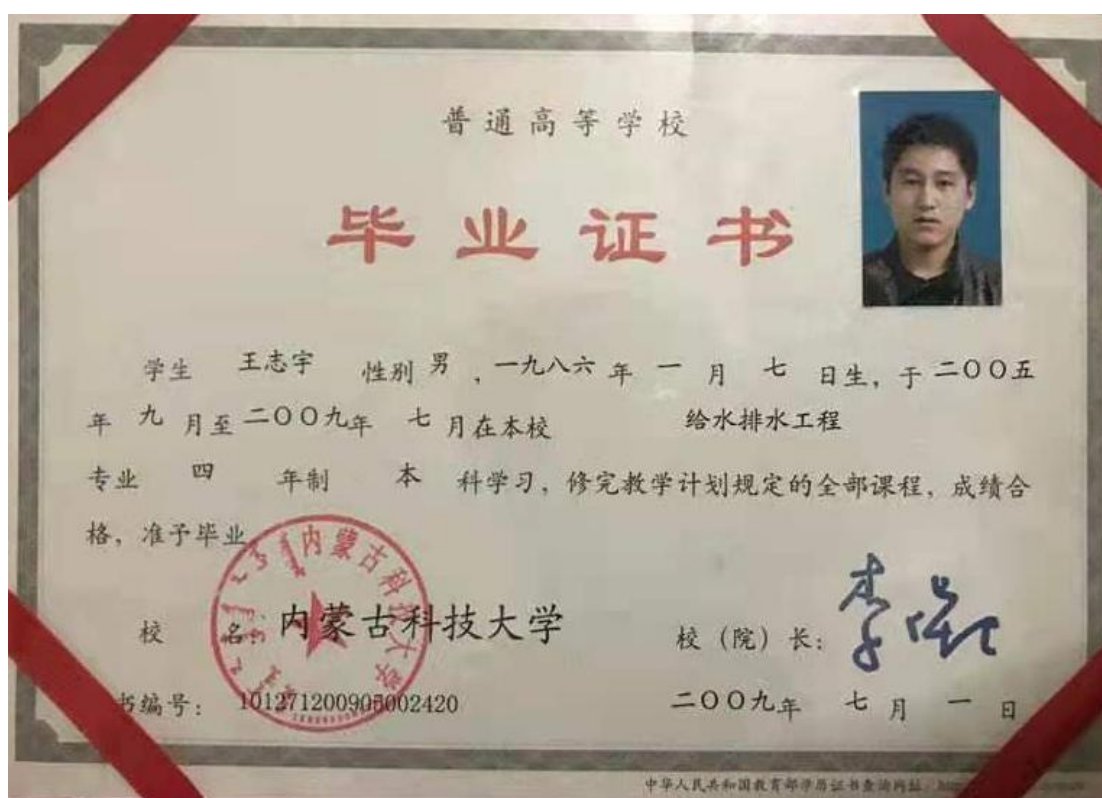 普通高等学校
毕业证书
学生 王志宇 性别 男 ,一九八六 年 一 月 七 日生，于 二〇〇五
年 九 月至 二〇〇九年 七 月在本校 给水排水工程
专业 四 年制 本 科学习，修完教学计划规定的全部课程，成绩合
格，准予毕业
内蒙古科技大学
校 名: 内蒙古科技大学 校（院）长:
书编号: 101271200905002420 二〇〇九年 七 月 一 日
中华人民共和国教育部学历证书查询网址: